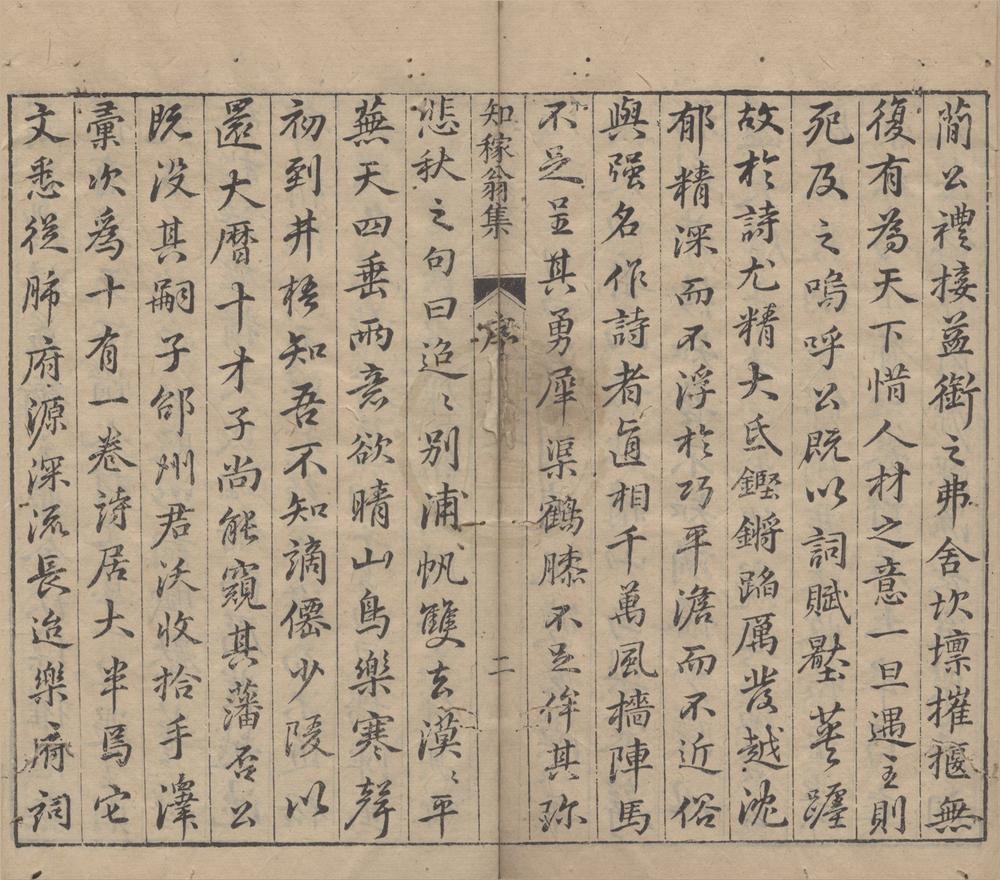 蕳公禮接益銜之弗舍坎壈摧㧖無
復有為天下惜人材之意一旦遇主則
死及之嗚呼公既以詞賦壓英躔
故於詩尤精大氐鏗鏘蹈厲發越沈
郁精深而不浮於巧平澹而不近俗
與强名作詩者直相千萬風檣陣馬
不足呈其勇犀渠鶴膝不足侔其珎
知稼翁集 序 二
悲秋之句曰迢〻别浦帆雙去漠〻平
蕪天四垂雨意欲晴山鳥樂寒聲
初到井梧知吾不知謫僊少陵以
還大曆十才子尚能窺其藩否公
既没其嗣子邵州君沃收拾手澤
彚次為十有一卷詩居大半焉它
文悉從肺府源深流長迨樂府詞